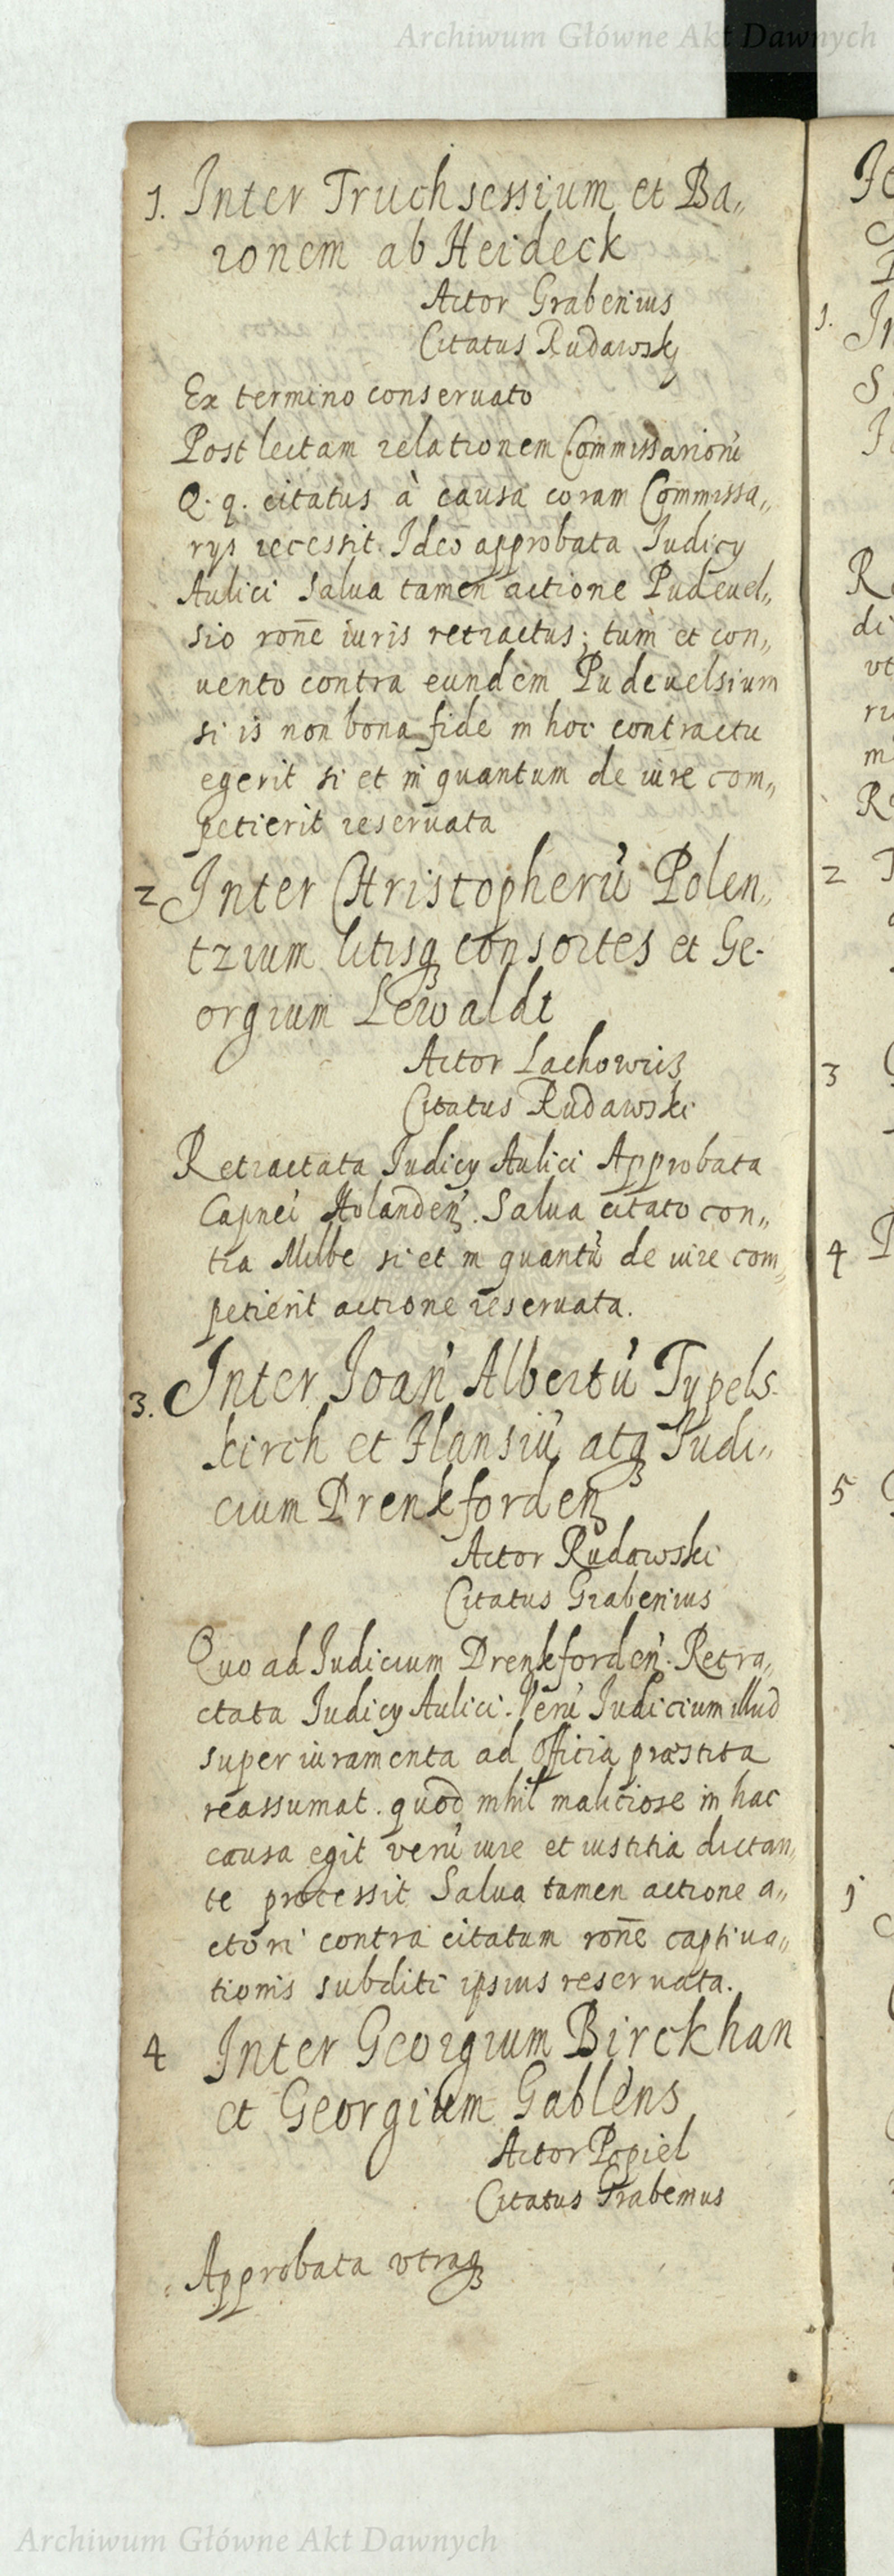 Archiwum Główne Akt Dawnych
1. Inter Truchsessium et Ba„
ronem ab Heideck
Actor Grabenius
Citatus Rudawskj
Ex termino conseruato
Post lectam relationem Commissarioru
Q. q. citatus à causa coram Commissa„
rys recessit. Ideo approbata Iudicy
Aulici Salua tamen actione Pudeuel„
sio rone iuris retractus; tum et con„
uento contra eundem Pudeuelsium
si is non bona fide in hoc contractu
egerit si et in quantum de iure com„
petierit reseruata
2 Inter Christopheru Polen„
tzium litisq consortes et Ge-
orgium Lewaldt
Actor Lachowicz
Citatus Rudawski
Retractata Iudicy Aulici Approbata
Capnei Holanden. Salua citato con„
tra Milbe si et in quantu de iure com„
petierit actione reseruata.
3. Inter Ioan Albertu Typels-
kirch et Hansiu atq Iudi„
cium Drenkforden
Actor Rudawski
Citatus Grabenius
Quo ad Iudicium Drenkforden. Retra„
ctata Iudicy Aulici. Veru Iudicium illud
super iuramenta ad officia præstita
reassumat. quod nihil malitiose in hac
causa egit veru iure et iustitia dictan„
te processit Salua tamen actione a„
ctori contra citatum rone captiua„
tionis subditi ipsius reseruata.
4 Inter Georgium Birckhan
et Georgium Gablens
Actor Popiel
Citatus Grabenius
Approbata vtraq
Archiwum Główne Akt Dawnych